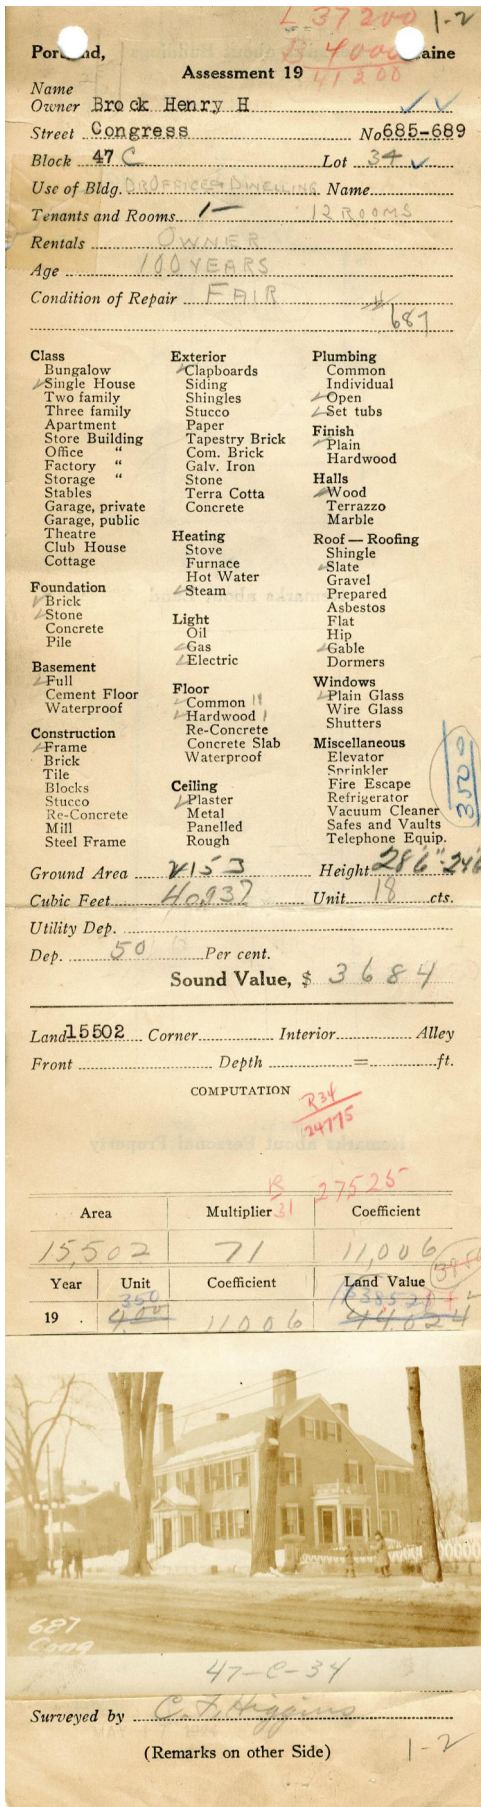 L 37200 1-2
B 4000
41200
Portland, Maine
Assessment 19
Name
Owner Brock Henry H
Street Congress No 685-689
Block 47 C Lot 34
Use of Bldg. DR OFFICE & DWELLING Name
Tenants and Rooms 1- 12 ROOMS
Rentals OWNER
Age 100 YEARS
Condition of Repair FAIR
687
Class
Bungalow
Single House
Two family
Three family
Apartment
Store Building
Office "
Factory "
Storage "
Stables
Garage, private
Garage, public
Theatre
Club House
Cottage
Foundation
Brick
Stone
Concrete
Pile
Basement
Full
Cement Floor
Waterproof
Construction
Frame
Brick
Tile
Blocks
Stucco
Re-Concrete
Mill
Steel Frame
Exterior
Clapboards
Siding
Shingles
Stucco
Paper
Tapestry Brick
Com. Brick
Galv. Iron
Stone
Terra Cotta
Concrete
Heating
Stove
Furnace
Hot Water
Steam
Light
Oil
Gas
Electric
Floor
Common 11
Hardwood 1
Re-Concrete
Concrete Slab
Waterproof
Ceiling
Plaster
Metal
Panelled
Rough
Plumbing
Common
Individual
Open
Set tubs
Finish
Plain
Hardwood
Halls
Wood
Terrazzo
Marble
Roof — Roofing
Shingle
Slate
Gravel
Prepared
Asbestos
Flat
Hip
Gable
Dormers
Windows
Plain Glass
Wire Glass
Shutters
Miscellaneous
Elevator
Sprinkler
Fire Escape
Refrigerator
Vacuum Cleaner
Safes and Vaults
Telephone Equip.
3500
Ground Area 2153 Height 28'6"-24'6
Cubic Feet 40,937 Unit 18 cts.
Utility Dep.
Dep. 50 Per cent.
Sound Value, $ 3684
Land 15502 Corner Interior Alley
Front Depth = ft.
COMPUTATION
R34
24775
R 31 27525
Area Multiplier Coefficient
15,502 71 11,006
Year Unit Coefficient Land Value
350 38521
19 . 4.00 11006 44,024
687
Cong
47-C-34
Surveyed by C. F. Higgins
(Remarks on other Side) 1-2